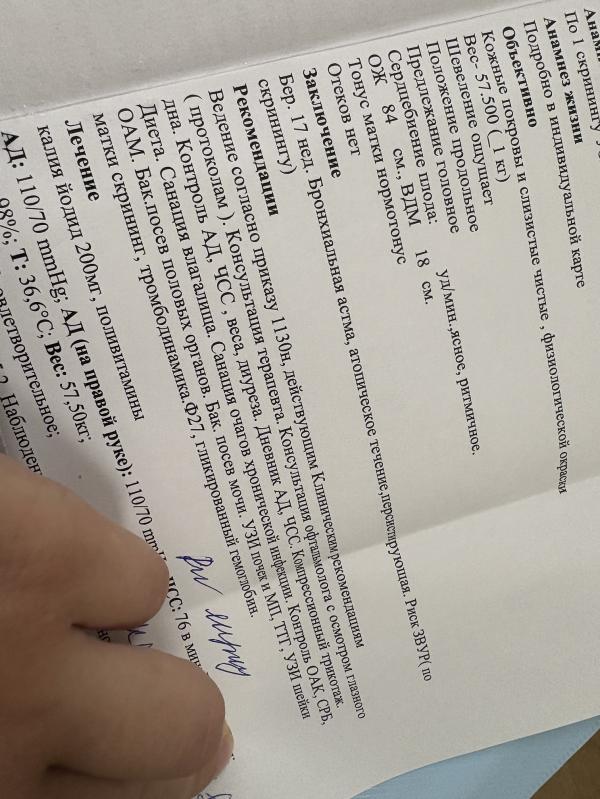 Анам
По 1 скринингу
Анамнез жизни
Подробно в индивидуальной карте
Объективно
Кожные покровы и слизистые чистые , физиологической окраски
Вес- 57.500 ( 1 кг)
Шевеление ощущает
Положение продольное
Предлежание головное
Сердцебиение плода: уд/мин.,ясное, ритмичное.
ОЖ 84 см., ВДМ 18 см.
Тонус матки нормотонус
Отеков нет
Заключение
Бер. 17 нед. Бронхиальная астма, атопическое течение,персистирующая. Риск ЗВУР( по
скринингу)
Рекомендации
Ведение согласно приказу 1130н, действующим Клиническим рекомендациям
( протоколам ). Консультация терапевта. Консультация офтальмолога с осмотром глазного
дна. Контроль АД, ЧСС , веса, диуреза. Дневник АД, ЧСС. Компрессионный трикотаж.
Диета. Санация влагалища. Санация очагов хронической инфекции. Контроль ОАК, СРБ,
ОАМ. Бак.посев половых органов. Бак. посев мочи. УЗИ почек и МП, ТТГ , УЗИ шейки
матки скрининг , тромбодинамика.Ф27, гликированный гемоглобин.
Лечение
калия йодид 200мг , поливитамины
АД: 110/70 mmHg; АД (на правой руке): 110/70 ЧСС: 76 в мин
98%; Т: 36,6°C; Вес: 57,50кг;
овлетворительное;
Наблюден